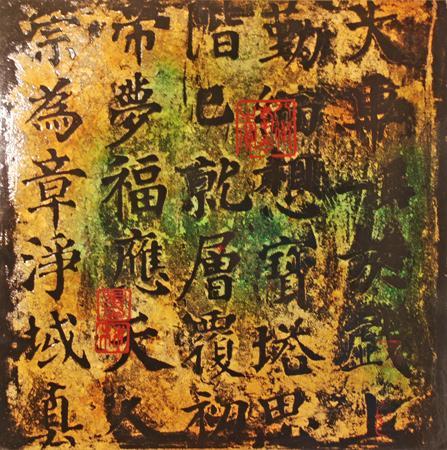 戲上
勤想寶塔思
階已就層覆初
帝夢福應天人
宗為章淨域真